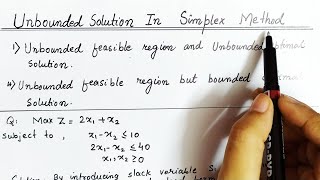 Unbounded Solution In Simplex Method
i) Unbounded feasible region and Unbounded optimal
solution.
ii) Unbounded feasible region but bounded
solution.
Q: Max Z = 2x₁ + x₂
subject to, x₁-x₂ ≤ 10
2x₁-x₂ ≤ 40
x₁, x₂ ≥ 0
By introducing slack variable S₁